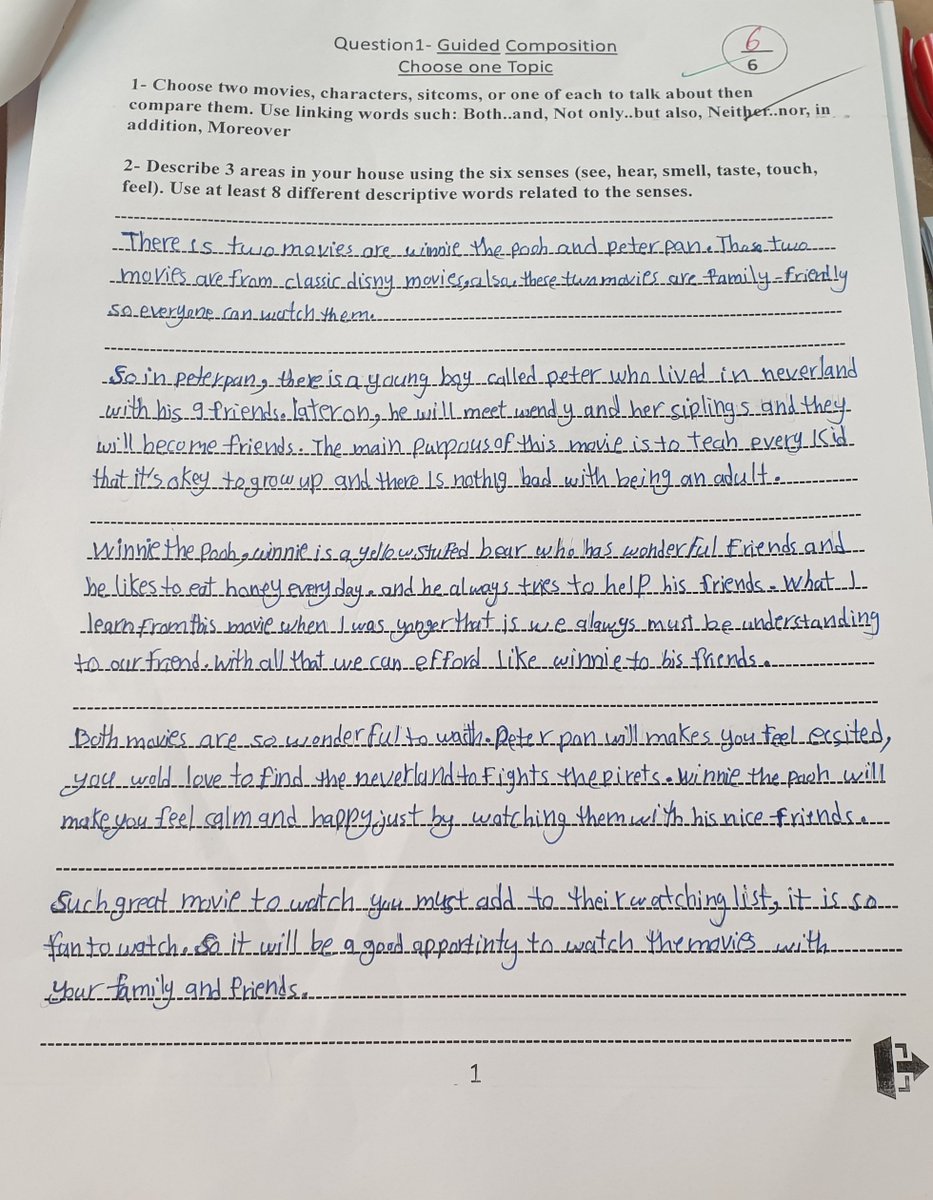 Question1- Guided Composition
Choose one Topic
6
6
1- Choose two movies, characters, sitcoms, or one of each to talk about then
compare them. Use linking words such: Both..and, Not only..but also, Neither..nor, in
addition, Moreover
2- Describe 3 areas in your house using the six senses (see, hear, smell, taste, touch,
feel). Use at least 8 different descriptive words related to the senses.
There is two movies are winnie the pooh and peter pan. These two
movies are from classic disny movies, also, these two movies are family-friendly
so everyone can watch them.
So in peter pan, there is a young boy called peter who lived in neverland
with his 9 friends. later on, he will meet wendy and her siplings and they
will become friends. The main purpous of this movie is to teah every kid
that it's okey to grow up and there is nothig bad with being an adult.
Winnie the Pooh, winnie is a yellow stufed bear who has wonderful friends and
he likes to eat honey every day. and he always tries to help his friends. What I
learn from this movie when I was yonger that is we alawys must be understanding
to our friend. with all that we can efford like winnie to his friends.
Both movies are so wonderful to wacth. Peter pan will makes you feel ecsited,
you wold love to find the neverland to fights the pirets. Winnie the pooh will
make you feel calm and happy just by watching them with his nice friends.
Such great movie to watch you must add to their watching list, it is so
fan to watch. So it will be a good apportinty to watch the movies with
your family and friends.
1